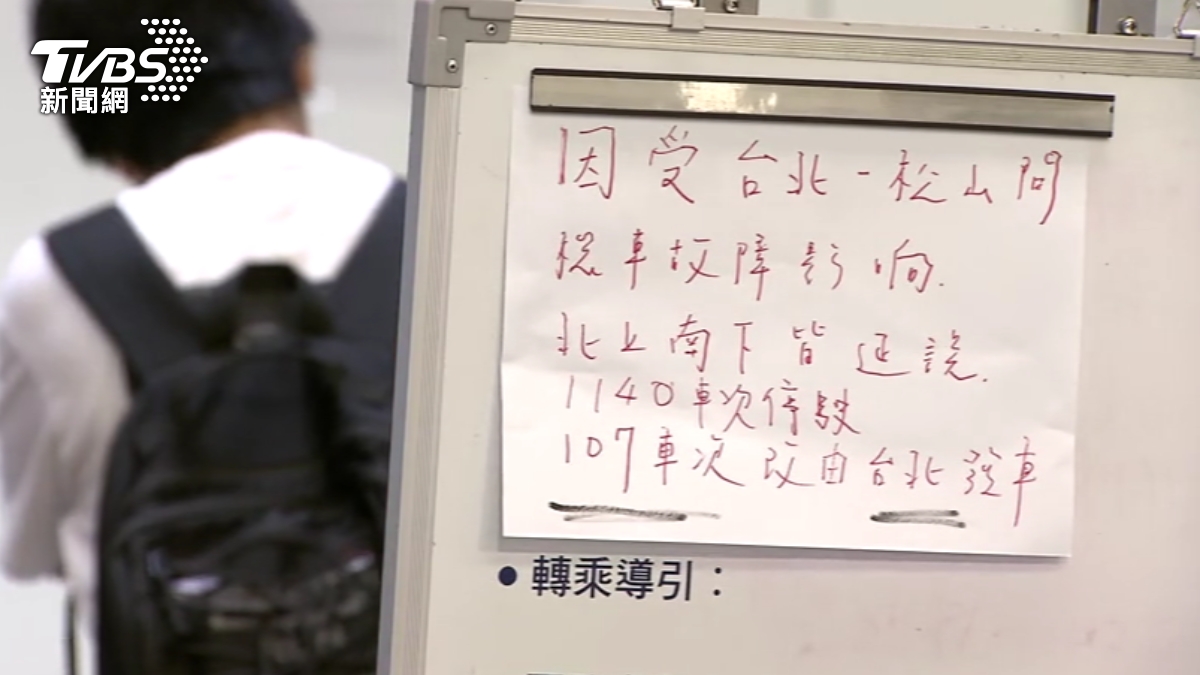 TVBS
新聞網
因受台北-松山間
從車故障影响.
北上南下皆延誤.
1140車次停駛
107車次改由台北發車
•轉乘導引：